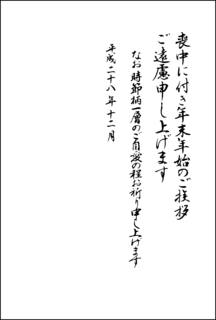 喪中に付き年末年始のご挨拶
ご遠慮申し上げます
なお時節柄一層のご自愛の程お祈り申し上げます
平成二十八年十二月